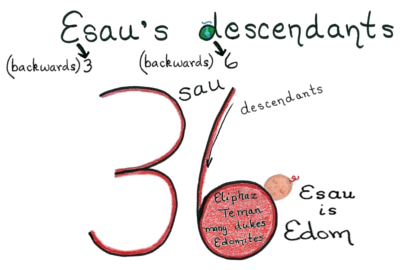 Esau's descendants
(backwards) 3 (backwards) 6
sau
descendants
36
Eliphaz
Teman
many dukes
Edomites
Esau
is
Edom